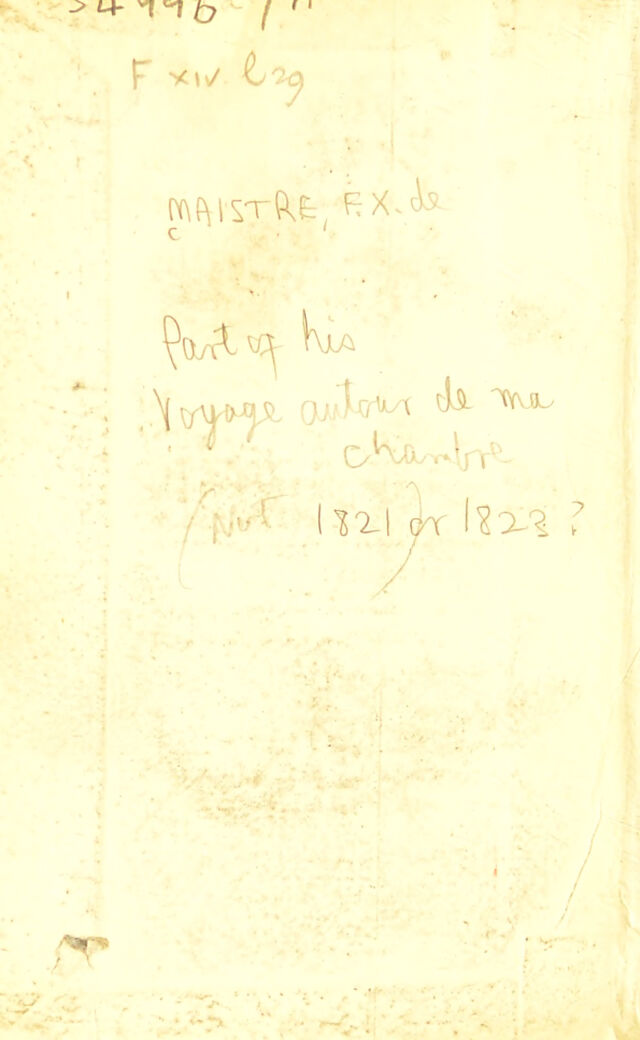 34996 / A
F xiv. l 29
MAISTRE, F.X. de
c
Part of his
Voyage autour de ma
chambre
(Not 1821) or 1823?